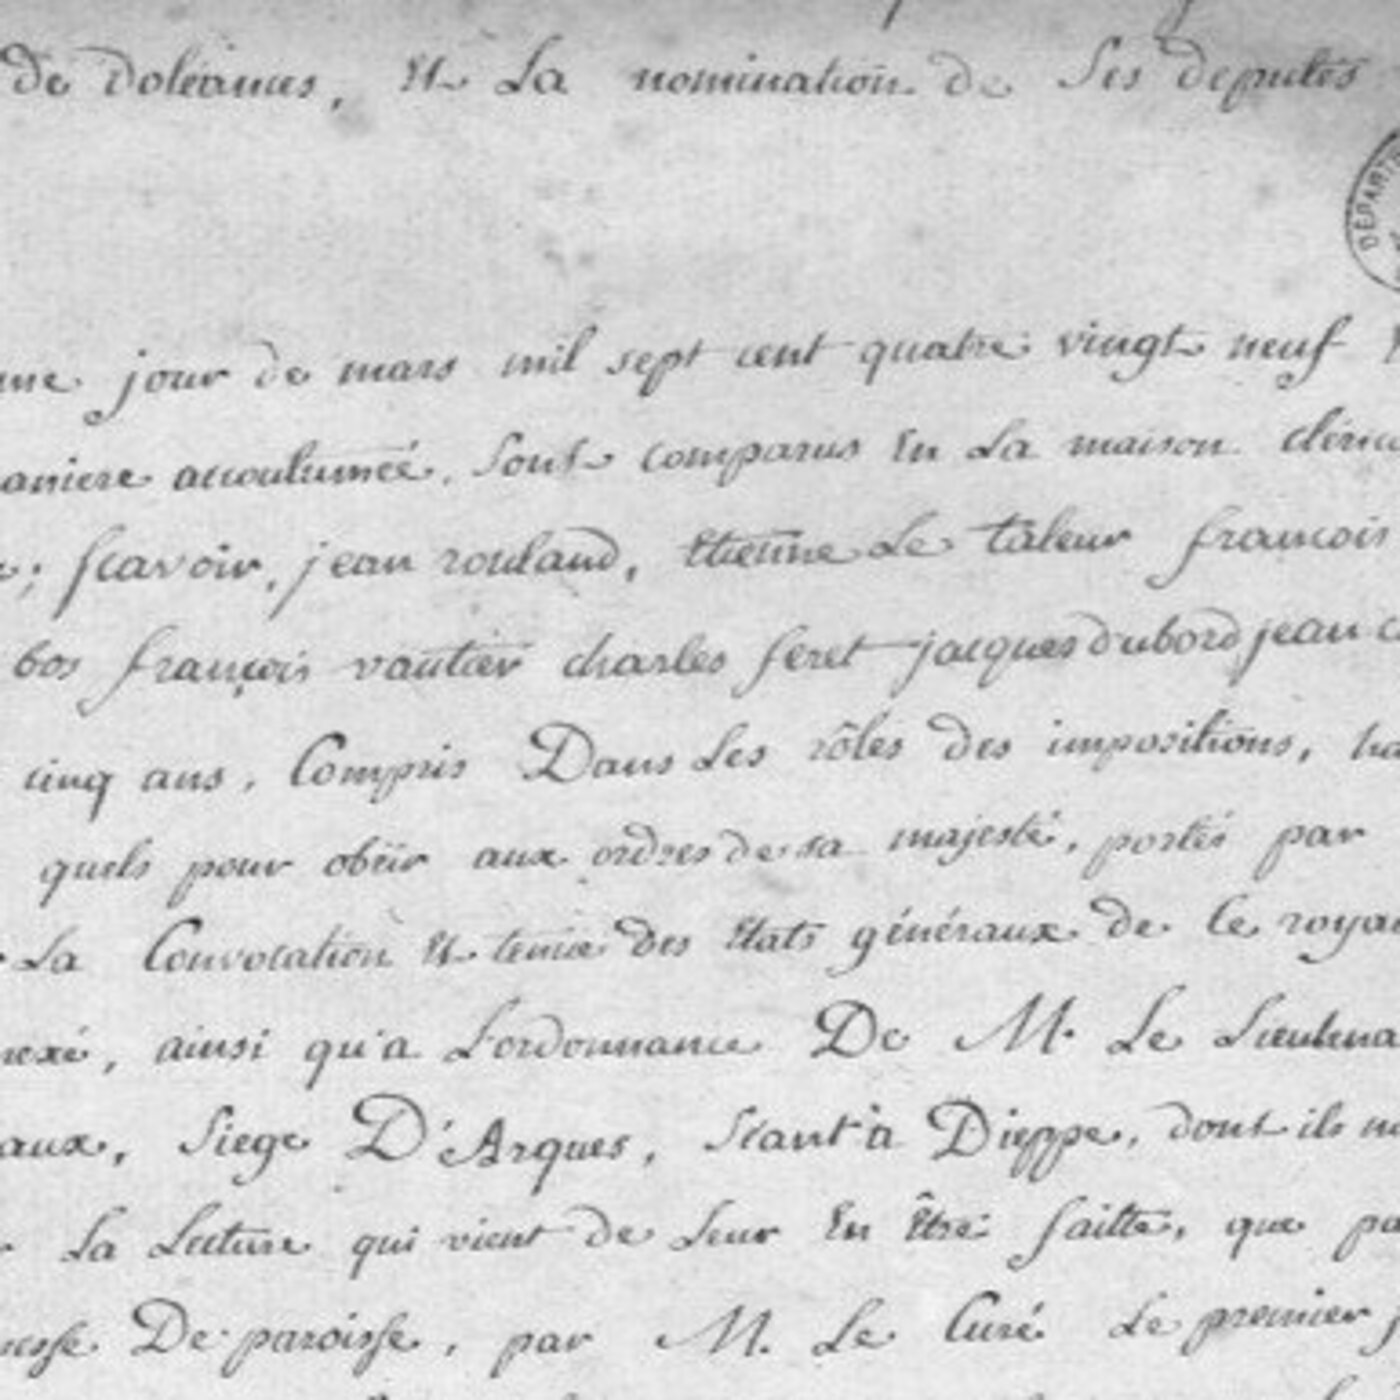 de doléances, Et La nomination de Ses deputés
DÉPART
jour de mars mil sept cent quatre vingt neuf
aniere accoutumée, Sont comparus En La maison
Scavoir, jean rouland, Etienne Le tàleur francois
bos françois vautier charles feret jacques dubord jean
cinq ans, Compris Dans Les rôles des impositions, ha
quels pour obëir aux ordres de sa majesté, portés par
La Convocation Et tenüe des Etats généraux de Ce roya
nexé, ainsi qu'a L'ordonnance De M. Le Lieutena
aux, Siege D'Arques, Séant à Dieppe, dont ils
La Lecture qui vient de Leur En Être faitte, que
messe De paroisse, par M. Le Curé Le premier